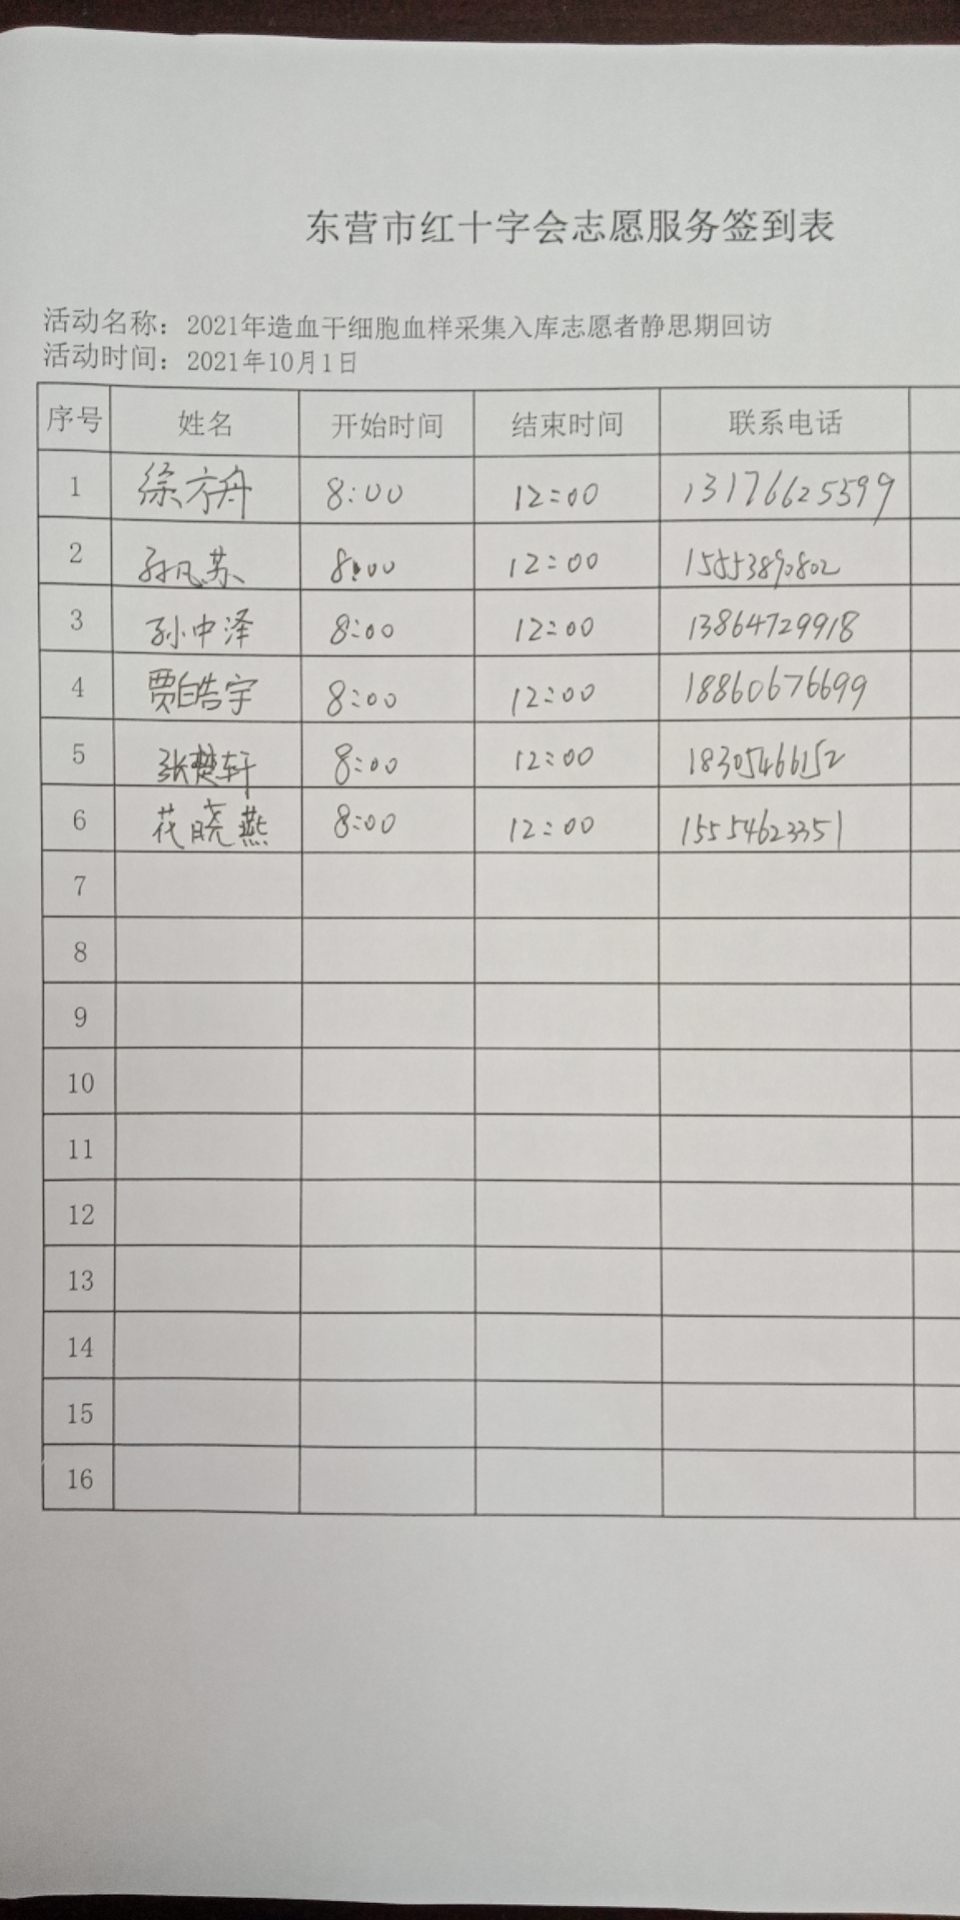 东营市红十字会志愿服务签到表
活动名称：2021年造血干细胞血样采集入库志愿者静思期回访
活动时间：2021年10月1日
序号 姓名 开始时间 结束时间 联系电话
1 徐方舟 8:00 12:00 13176625599
2 孙凡苏 8:00 12:00 15553890802
3 孙中泽 8:00 12:00 13864729918
4 贾皓宇 8:00 12:00 18860676699
5 张楚轩 8:00 12:00 18305466152
6 花晓燕 8:00 12:00 15554623351
7
8
9
10
11
12
13
14
15
16